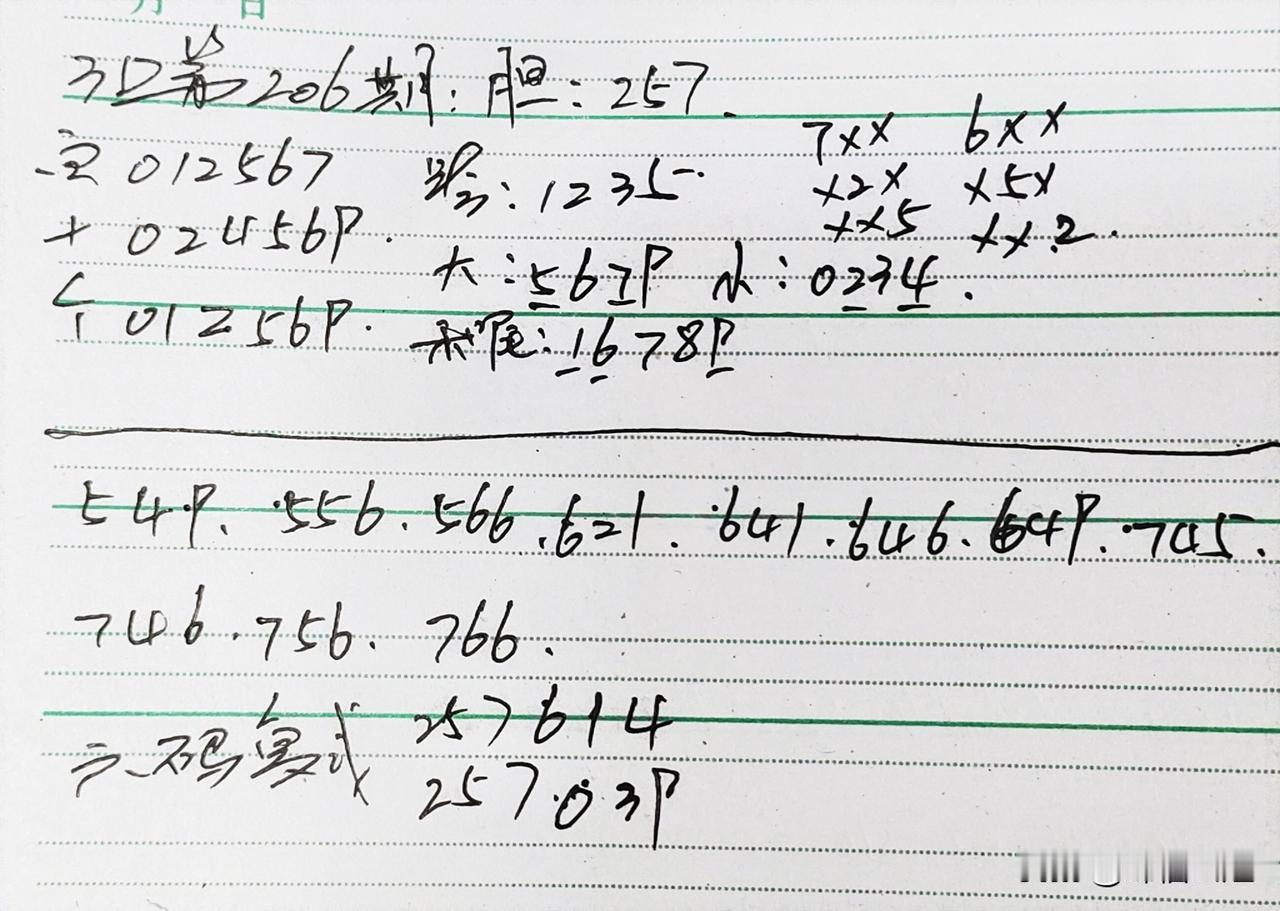 月 日
3D第206期：胆：257.
百 012567 跨：1235.
7xx 6xx
x2x x5x
xx5 xx2.
十 024569.
大：5679 小：0234.
个 012569.
和尾：16789
549. 556. 566. 621. 641. 646. 649. 745.
746. 756. 766.
六码复式 257614
257.039